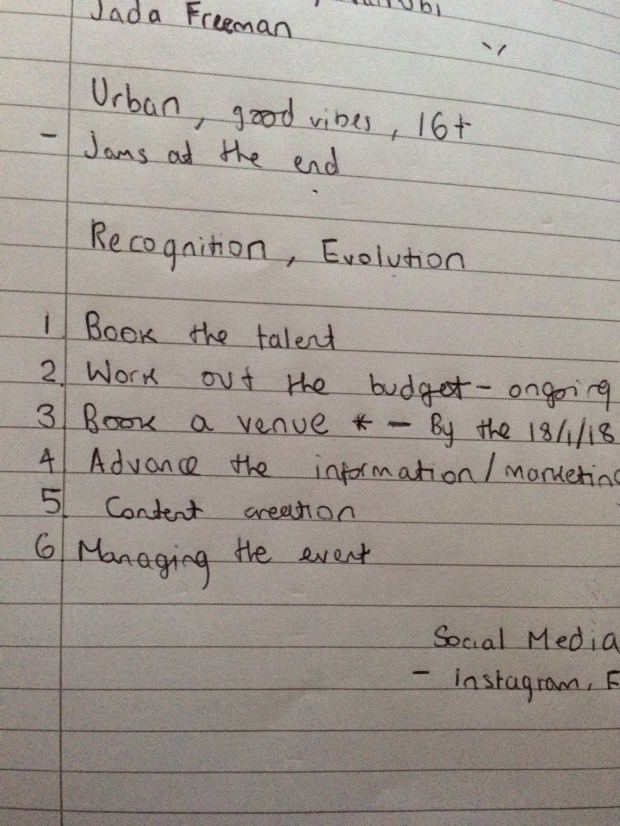 Jada Freeman
Urban, good vibes, 16+
- Jams at the end
Recognition, Evolution
1 Book the talent
2. Work out the budget - ongoing
3 Book a venue * - By the 18/1/18
4 Advance the information/marketing
5 Content creation
6 Managing the event
Social Media
- instagram, F